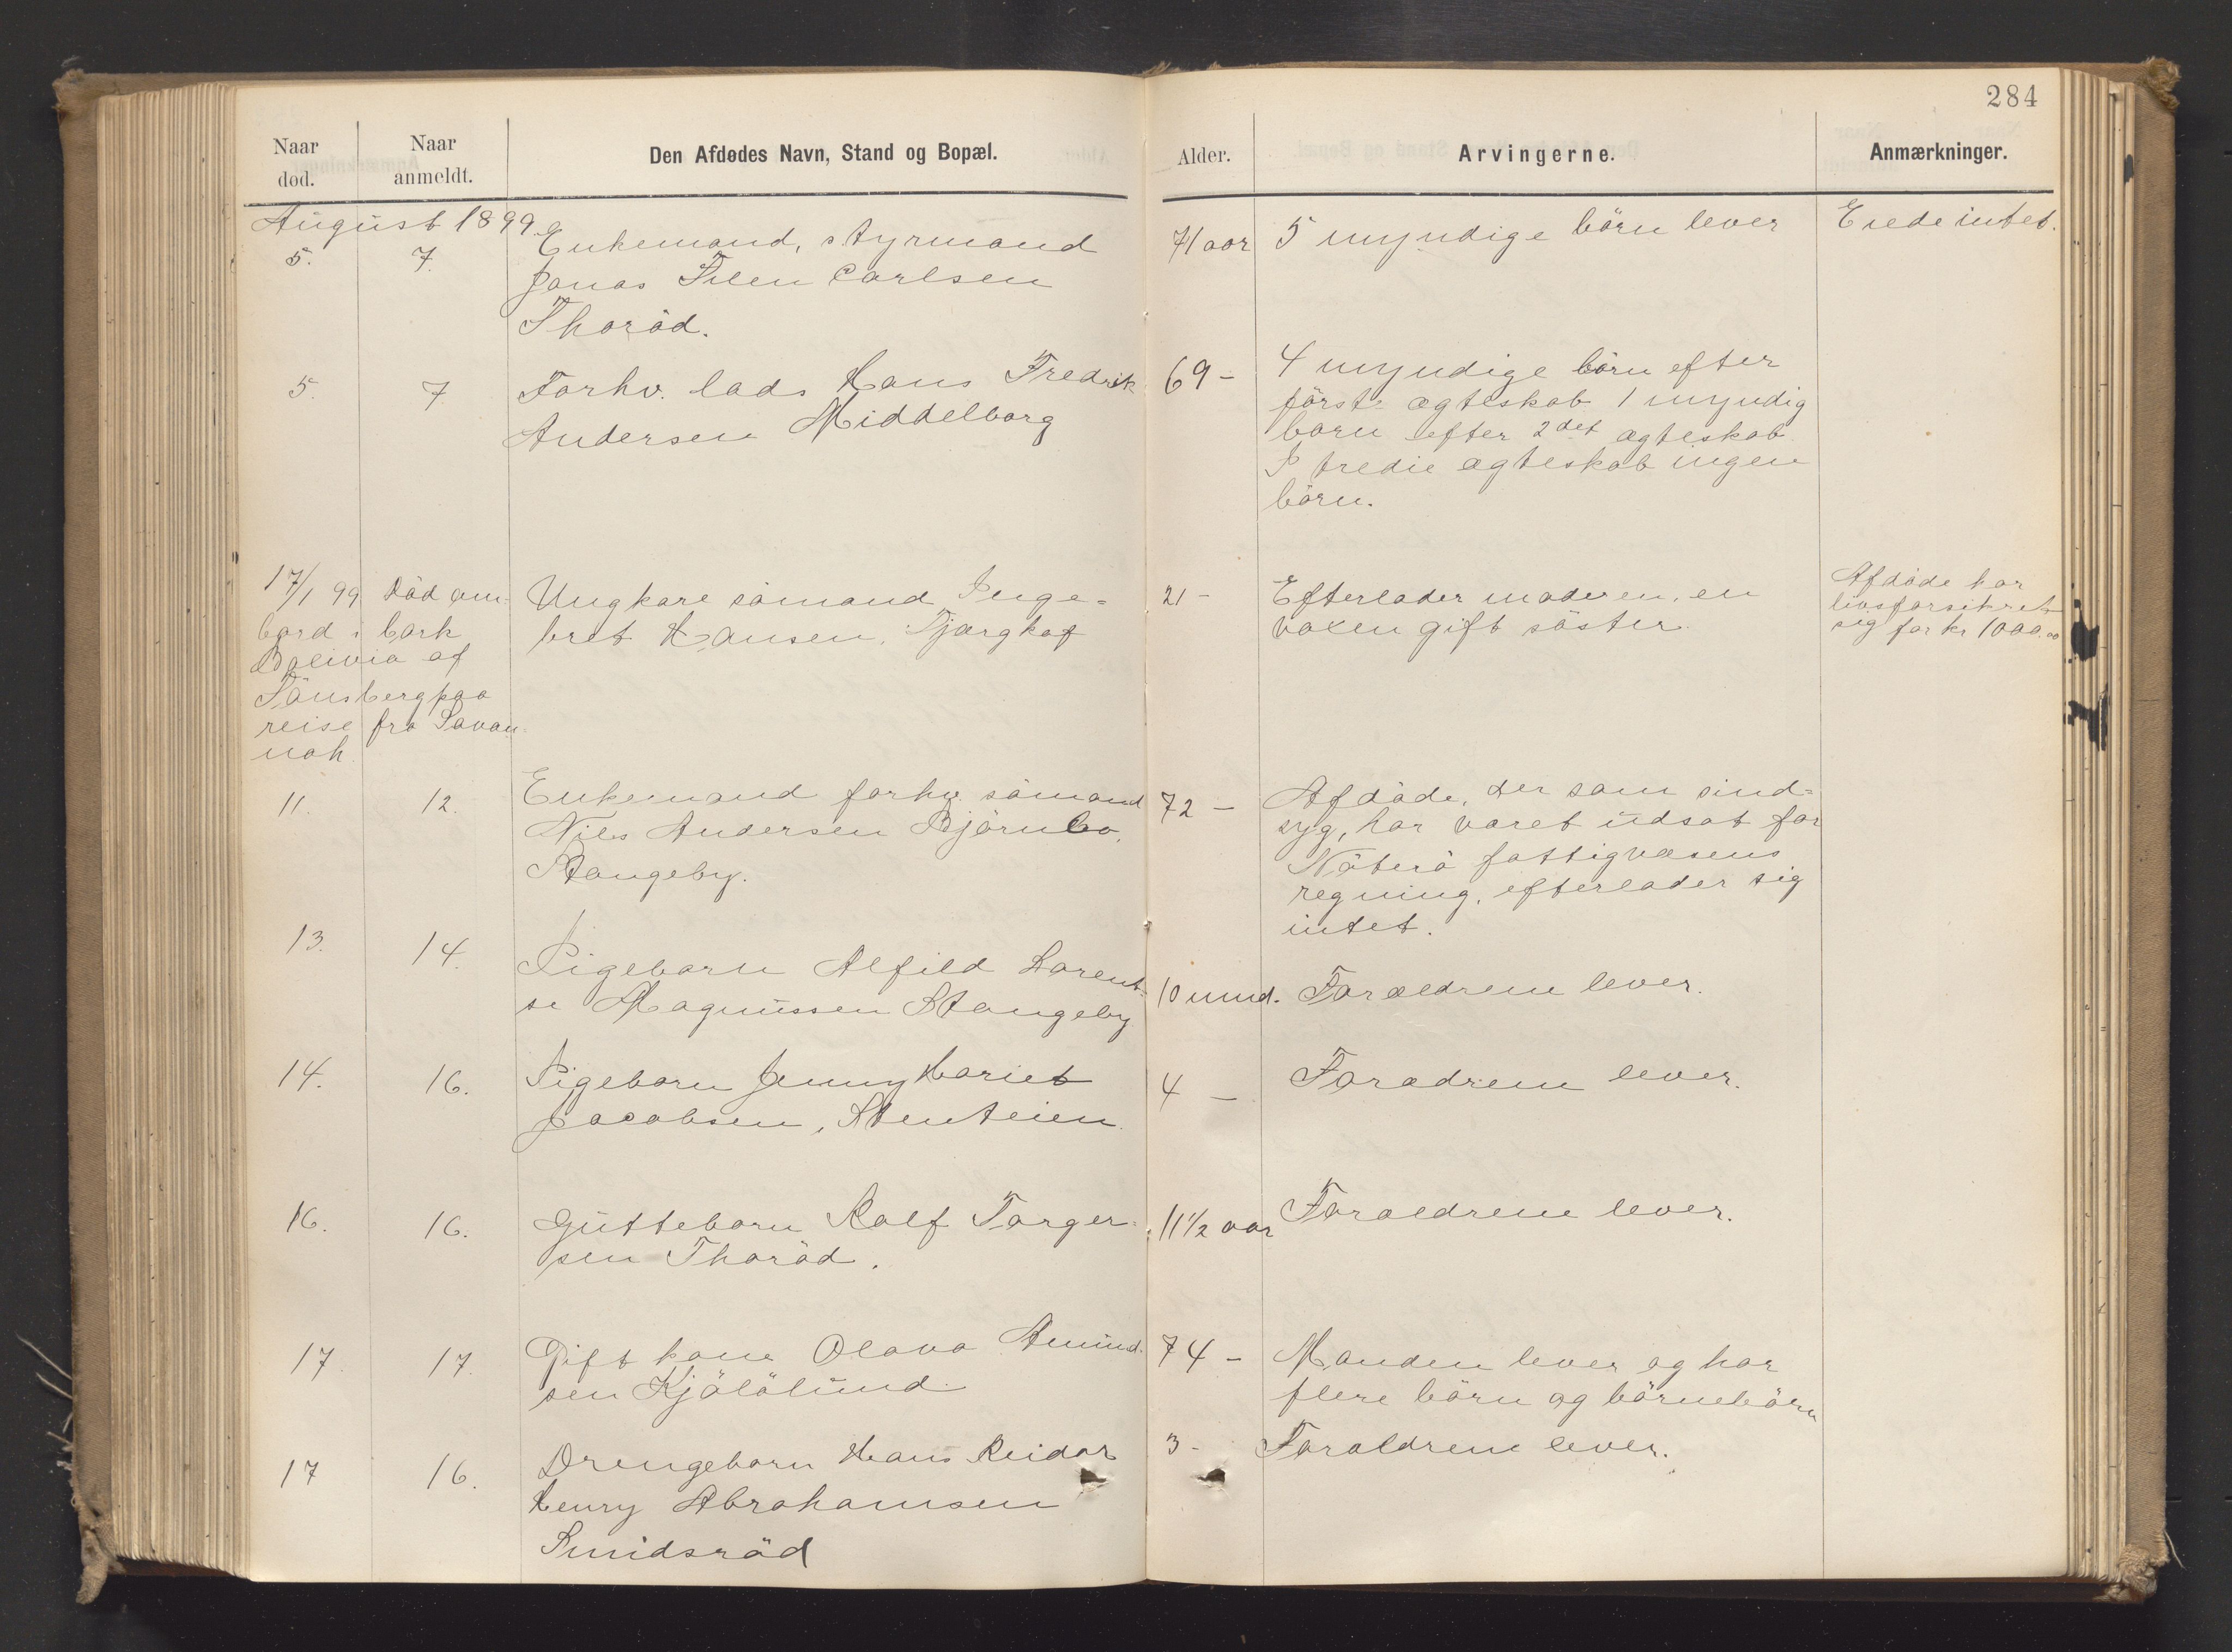 284
Naar død.
Naar anmeldt.
Den Afdødes Navn, Stand og Bopæl.
Alder.
Arvingerne.
Anmærkninger.
August 1899.
5.
7.
Enkemand, styrmand
Jonas Tilen Carlsen
Thoröd.
71 aar
5 myndige börn lever
Eiede intet.
5.
7.
Forhv. lods Hans Fredrik
Andersen Middelborg
69 -
4 myndige börn efter
förste ægteskab 1 myndig
barn efter 2det ægteskab
I tredie ægteskab ingen
börn.
17/1 99 Död om-
bord i bark
Bolivia af
Tönsberg paa
reise fra Savan-
nah
Ungkarl sömand Inge-
bret Hansen, Tjærgkof
21 -
Efterlader moderen, en
voxen gift söster.
Afdöde har
livsforsikret
sig for kr 1000.00
11.
12.
Enkemand forhv. sömand
Nils Andersen Björnebo,
Stangeby.
72 -
Afdöde, der som sind-
syg, har været udsat for
Nöterö fattigvæsens
regning, efterlader sig
intet.
13.
14.
Pigebarn Alfild Lorent-
se Magnussen Stangeby
10 mnd.
Forældrene lever.
14.
16.
Pigebarn Jenny Hariet
Jacobsen, Stenteien.
4 -
Forædrene lever.
16.
16.
Guttebarn Rolf Torger-
sen Thoröd.
11 1/2 aar
Forældrene lever.
17.
17.
Gift kone Olava Amund-
sen Kjölölund.
74 -
Manden lever og har
flere börn og börnebörn
17
16.
Drengebarn Hans Reidar
Henry Abrahamsen
Smidsröd
3 -
Foraldrene lever.